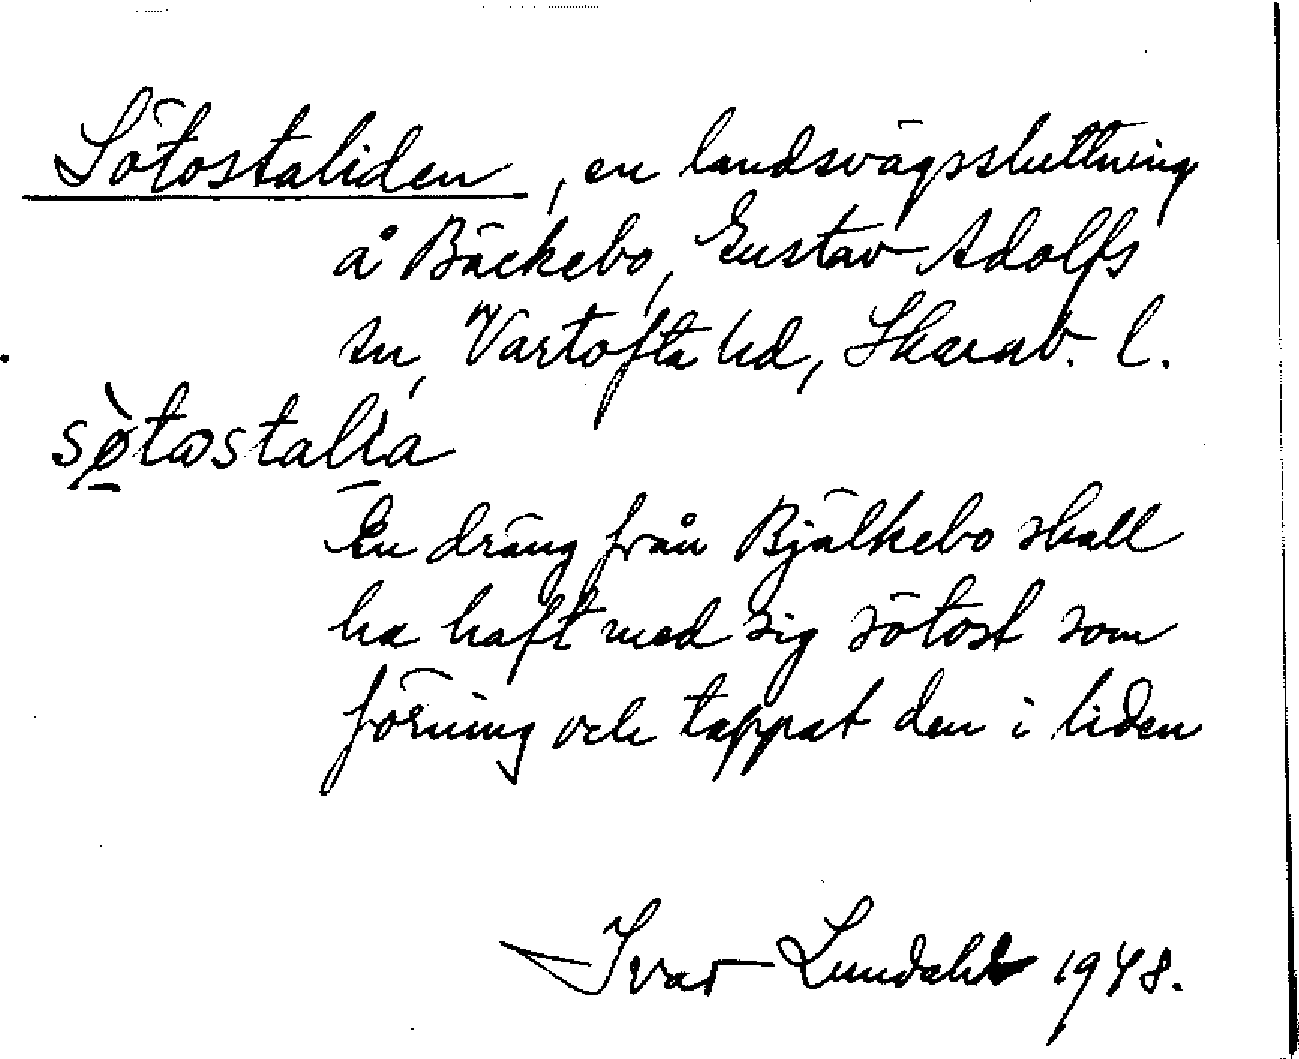 Sötostaliden, en landsvägssluttning
å Bäckebo, Gustav Adolfs
sn, Vartofta hd, Skarab. l.
sø̀tωstalıa
En dräng från Bjälkebo skall
ha haft med sig sötost som
förning och tappat den i liden
Ivar Lundahl 1948.